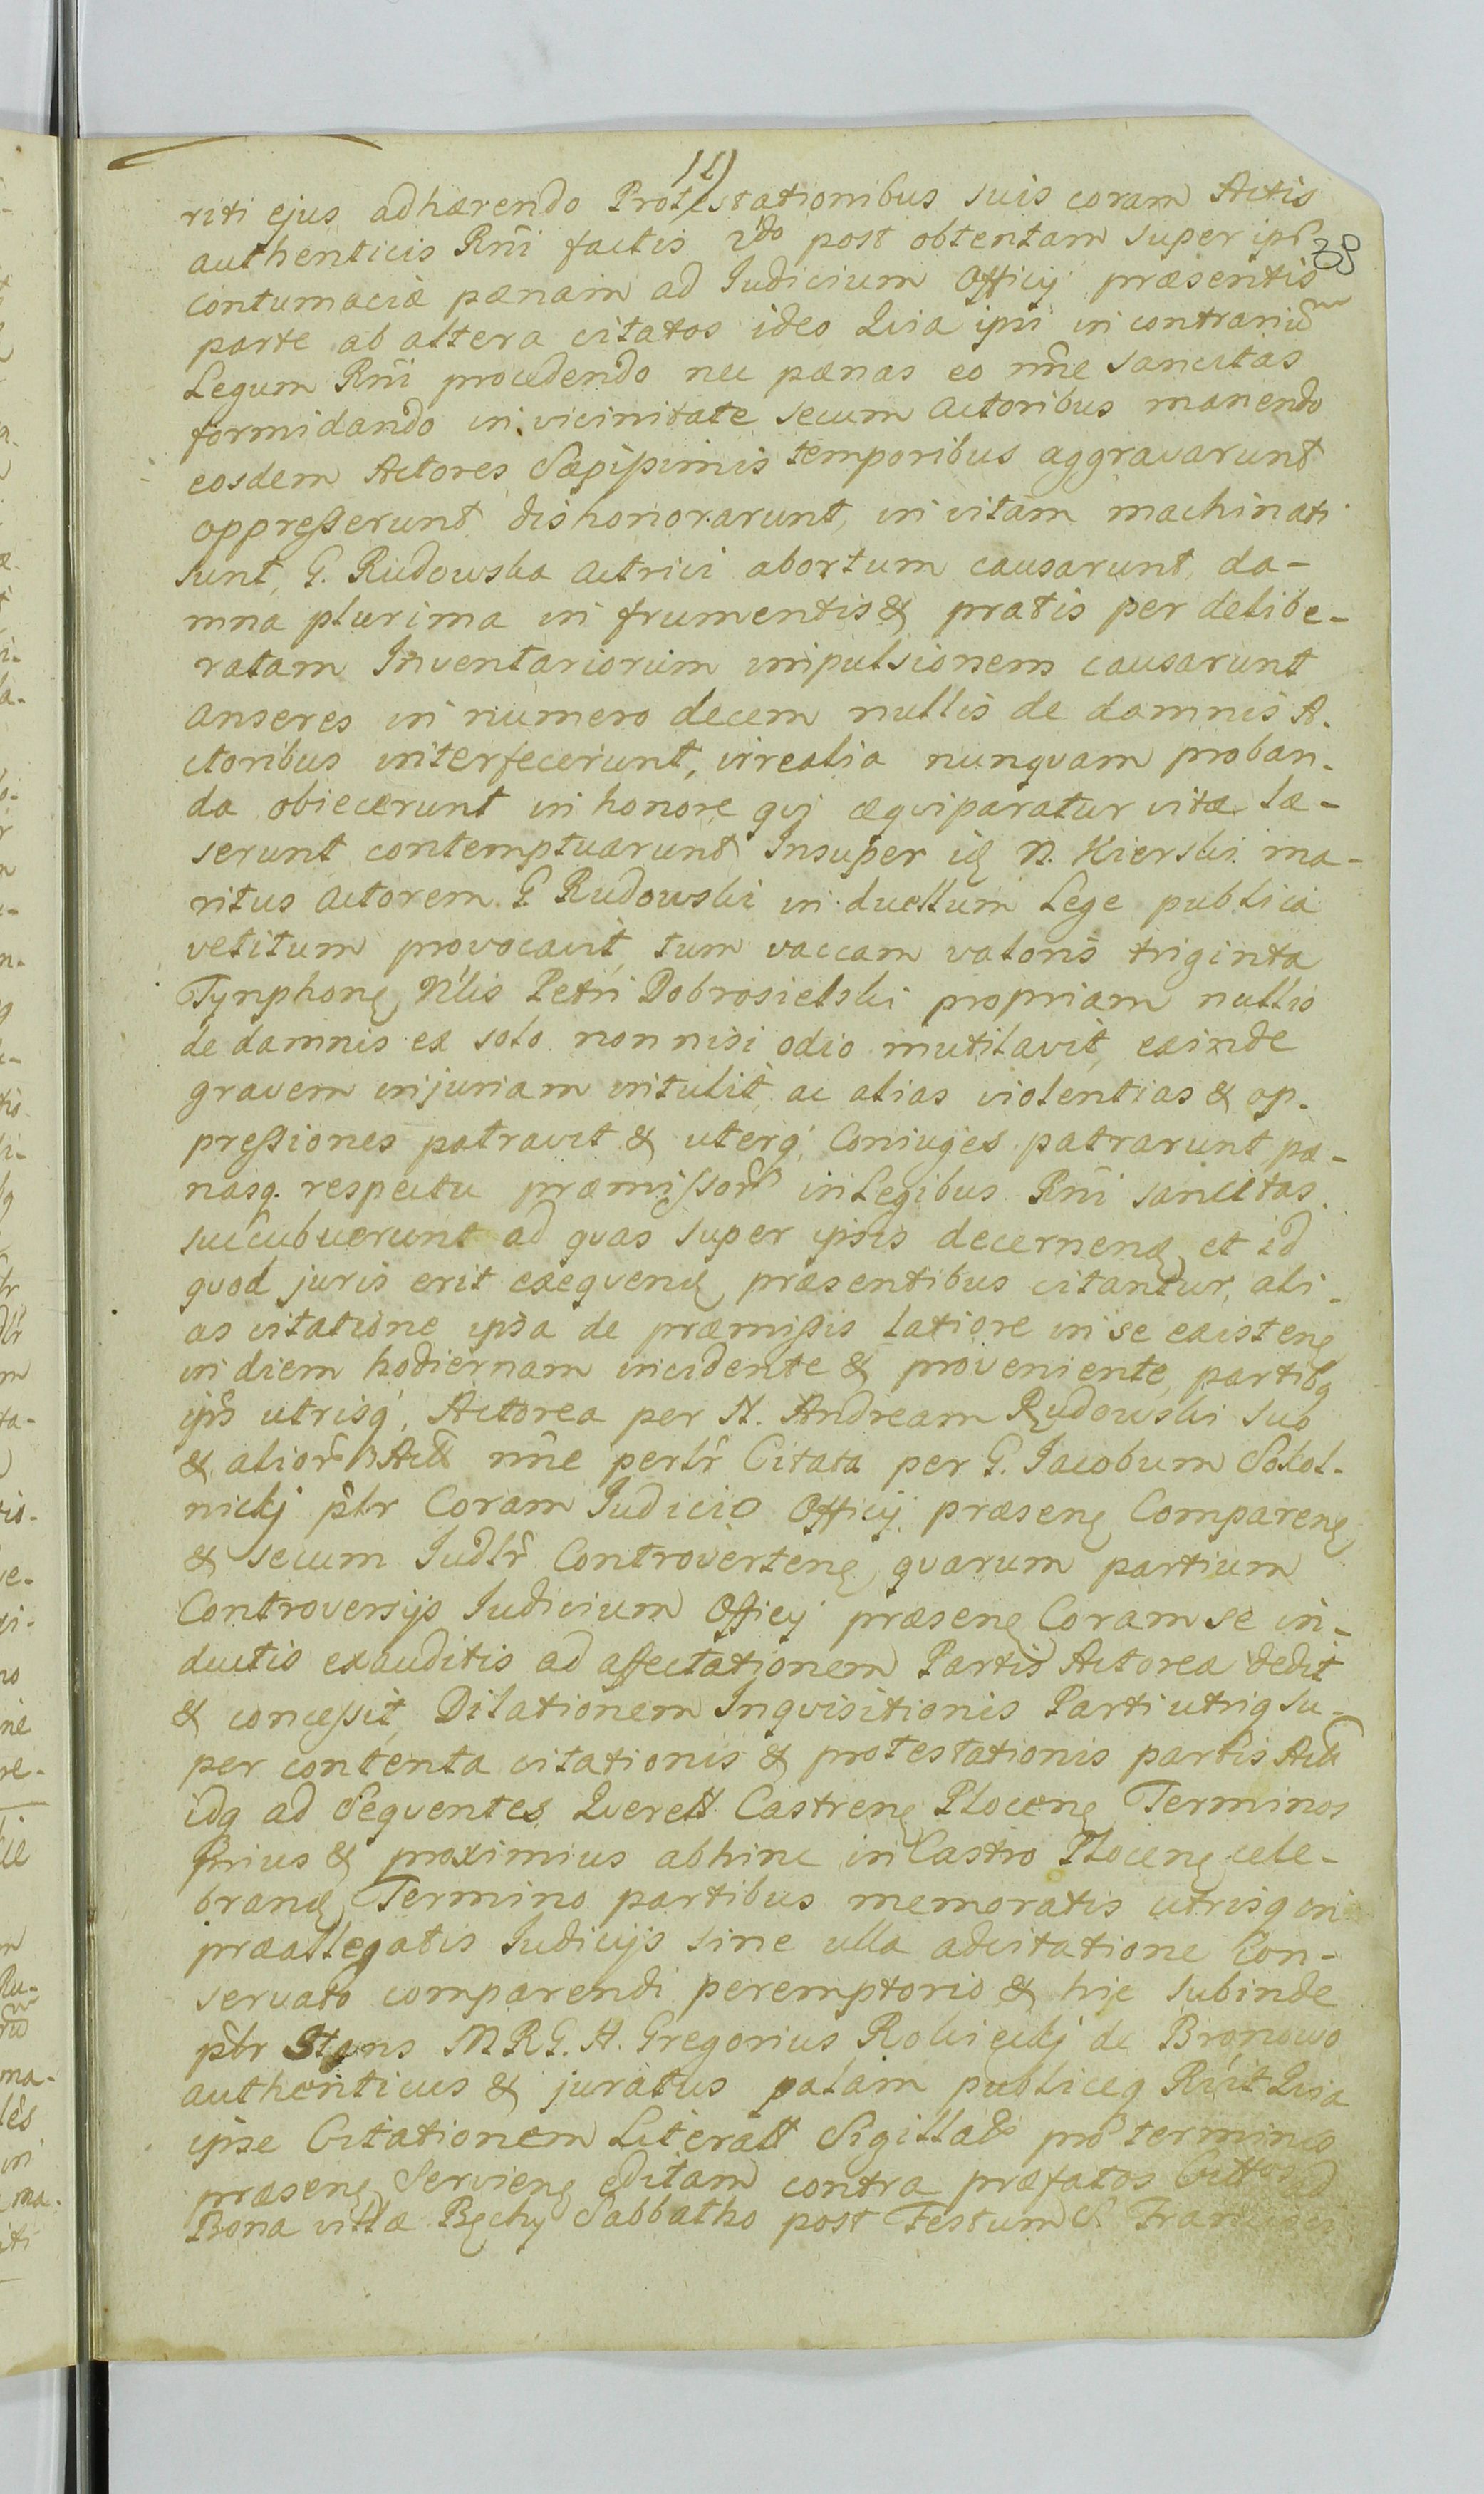 11)
38
riti ejus adhærendo Protestationibus suis coram Actis
authenticis Rñi factis 2do post obtentam super ips
contumaciæ pænam ad Judicium Officij præsentis
parte ab altera citatos ideo Quia ipsi in contrariũ
Legum Rñi procedendo nec pænas eo ñne sancitas
formidando in vicinitate secum Actoribus manendo
eosdem Actores Sæpissimis temporibus aggravarunt
oppresserunt, dishonorarunt, in vitam machinati
sunt, G. Rudowska Actrici abortum causarunt, da-
mna plurima in frumentis & pratis per delibe-
ratam Inventariorum impulsionem causarunt
anseres in numero decem nullis de damnis A-
ctoribus interfecerunt, irrealia nunqvam proban-
da obiecerunt in honore qvi æqviparatur vitæ læ-
serunt contemptuarunt Insuper id N. Kierski ma-
ritus Actorem G Rudowski in duellum Lege publica
vetitum provocavit, tum vaccam valoris triginta
Tynphong Nlis Petri Dobrosielski propriam nullis
de damnis ex solo non nisi odio mutilavit, exinde
gravem injuriam intulit, ac alias violentias & op-
pressiones patravit & uterq, Coniuges patrarunt, pæ-
nasq. respectu præmissor in Legibus Rñi sancitas
succubuerunt ad qvas super ipsis decernend et id
quod juris erit exeqvend præsentibus citantur, ali-
as citatione ipsa de præmissis latiore in se existeng
in diem hodiernam incidente & proveniente, partibq
ips utrisq, Actorea per N. Andream Rudowski suo
& alior Act ñne perlr Citata per G. Jacobum Sokol-
nicki ptr Coram Judicio Officij præseng Compareng
& secum Judlr Controverteng, qvarum partium
Controversijs Judicium Officij præseng Coram se in-
ductis exauditis ad affectationem Partis Actoreæ dedit
& concessit, Dilationem Inqvisitionis Parti utriq su-
per contenta citationis & protestationis partis Act
idq ad Seqventes Querell Castreng Ploceng Terminos
Prius & proximius abhinc in Castro Ploceng cele-
brand Termino partibus memoratis utrisq in
præallegatis Judicijs sine ulla adcitatione Con-
servato comparendi peremptorio & hic subinde
ptr Stans M R G. N. Gregorius Rokicki de Bronowo
authenticus & juratus palam publiceq Rcit Quia
ipse Citationem Literatt Sigillat pro termino
præseng Servieng editam contra præfatos Citt ad
Bona villæ Bęchy Sabbatho post Festum S. Francisci